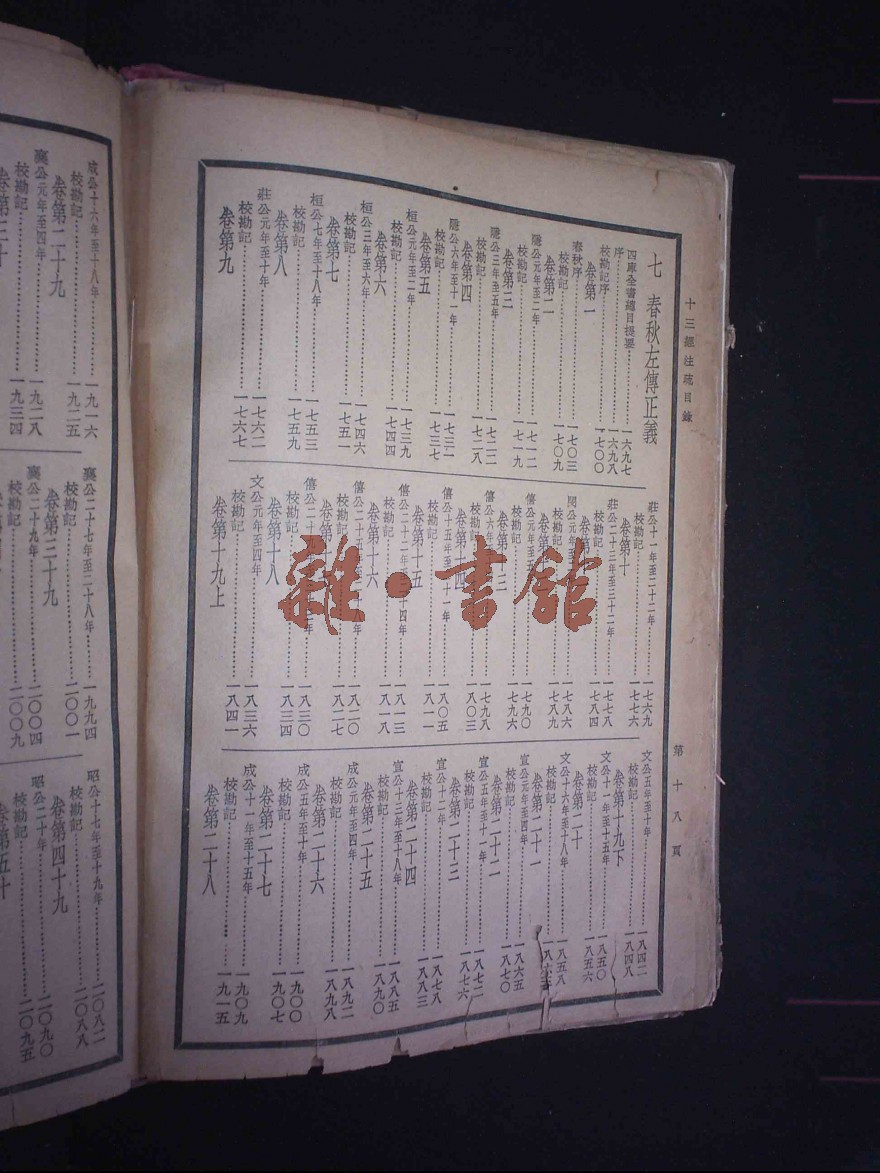 十三經注疏目錄
第十八頁
七 春秋左傳正義
四庫全書總目提要 一六九七
序 一六九八
校勘記序 一七〇〇
卷第一
春秋序 一七〇三
校勘記 一七〇九
卷第二
隱公元年至二年 一七一二
校勘記 一七一九
卷第三
隱公三年至五年 一七二二
校勘記 一七二八
卷第四
隱公六年至十一年 一七三一
校勘記 一七三七
卷第五
桓公元年至二年 一七三九
校勘記 一七四四
卷第六
桓公三年至六年 一七四六
校勘記 一七五一
卷第七
桓公七年至十八年 一七五三
校勘記 一七五九
卷第八
莊公元年至十年 一七六二
校勘記 一七六七
卷第九
莊公十一年至二十二年 一七六九
校勘記 一七七六
卷第十
莊公二十三年至三十二年 一七七八
校勘記 一七八四
卷第
閔公元年 一七八六
校勘記 一七八九
卷第
僖公元年至五 一七九〇
校勘記 一七九六
三
僖公六年 一七九八
校勘記 一八〇三
卷第 四
僖公十五年至 十一年 一八〇五
校勘記 一八一一
卷第十五
僖公二十二年 十四年 一八一三
校勘記 一八一八
卷第十六
僖公二十五年 八年 一八二〇
校勘記 一八二七
卷第十
僖公二十九年 年 一八三〇
校勘記 一八三四
卷第十八
文公元年至四年 一八三六
校勘記 一八四一
卷第十九上
文公五年至十年 一八四二
校勘記 一八四八
卷第十九下
文公十一年至十五年 一八五〇
校勘記 一八五六
卷第二十
文公十六年至十八年 一八五八
校勘記
卷第二十一
宣公元年至四年 一八六五
校勘記 一八七〇
卷第二十二
宣公五年至十一年 一八七二
校勘記 一八七六
卷第二十三
宣公十二年 一八七八
校勘記 一八八三
卷第二十四
宣公十三年至十八年 一八八五
校勘記 一八九〇
卷第二十五
成公元年至四年 一八九二
校勘記 一八九八
卷第二十六
成公五年至十年 一九〇〇
校勘記 一九〇七
卷第二十七
成公十一年至十五年 一九〇九
校勘記 一九一五
卷第二十八
成公十六年至十八年 一九一六
校勘記 一九二五
卷第二十九
襄公元年至四年 一九二八
校勘記 一九三四
卷第三十
襄公二十七年至二十八年 一九九四
校勘記 二〇〇一
卷第三十九
襄公二十九年 二〇〇四
校勘記 二〇〇九
昭公十七年至十九年 二〇八二
校勘記 二〇八八
卷第四十九
昭公二十年 二〇九〇
校勘記 二〇九五
卷第五十
雜·書館